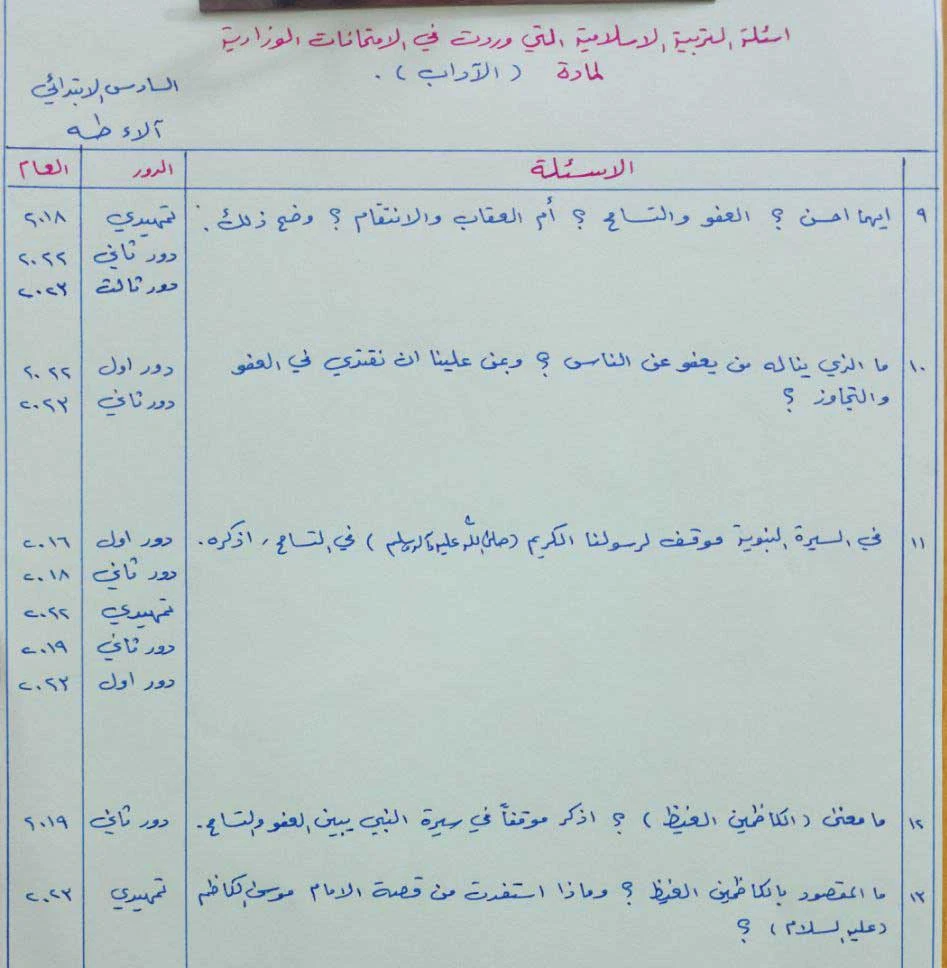 اسئلة التربية الاسلامية التي وردت في الامتحانات الوزارية
لمادة (الآداب).
السادس الابتدائي
آلاء طه
الاسئلة الدور العام
٩ ايهما احسن ؟ العفو والتسامح ؟ أم العقاب والانتقام ؟ وضح ذلك. تمهيدي ٢٠١٨
دور ثاني ٢٠٢٢
دور ثالث ٢٠٢٣
١٠ ما الذي يناله من يعفو عن الناس ؟ وبمن علينا ان نقتدي في العفو دور اول ٢٠٢٢
والتجاوز ؟ دور ثاني ٢٠٢٣
١١ في السيرة النبوية موقف لرسولنا الكريم (صلى الله عليه وآله وسلم) في التسامح، اذكره. دور اول ٢٠١٦
دور ثاني ٢٠١٨
تمهيدي ٢٠٢٢
دور ثاني ٢٠١٩
دور اول ٢٠٢٣
١٢ ما معنى (الكاظمين الغيظ) ؟ اذكر موقفاً في سيرة النبي يبين العفو والتسامح. دور ثاني ٢٠١٩
١٣ ما المقصود بالكاظمين الغيظ ؟ وماذا استفدت من قصة الامام موسى الكاظم تمهيدي ٢٠٢٣
(عليه السلام) ؟